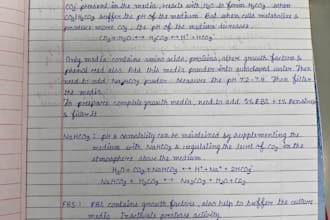 CO2 present in the media, reacts with H2O to form H2CO3. When
CO2/HCO3 buffer the pH of the medium. But when cells metabolise &
produce more CO2, the pH of the medium
CO2 + H2O ↔ H2CO3 ↔ H+ + HCO3-
Only media contains amino acids, proteins, other growth factors &
phenol red also. Add this media powder into autoclaved water. Then
need to add NaHCO3 powder. Measure the pH 7.2-7.4. Then filter
the media.
To prepare complete growth media, need to add 5% FBS + 1%
& filter it
NaHCO3 : pH & osmolality can be maintained by supplementing the
medium with NaHCO3 & regulating the level of CO2 in the
atmosphere above the medium.
H2O + CO2 + NaHCO3 ↔ H+ + Na+ + 2HCO3-
NaHCO3 + H2CO3 ↔ Na2CO3 + H2O + CO2
FBS : FBS contains growth factors, also help to buffer the culture
media. Inactivate protease activity.